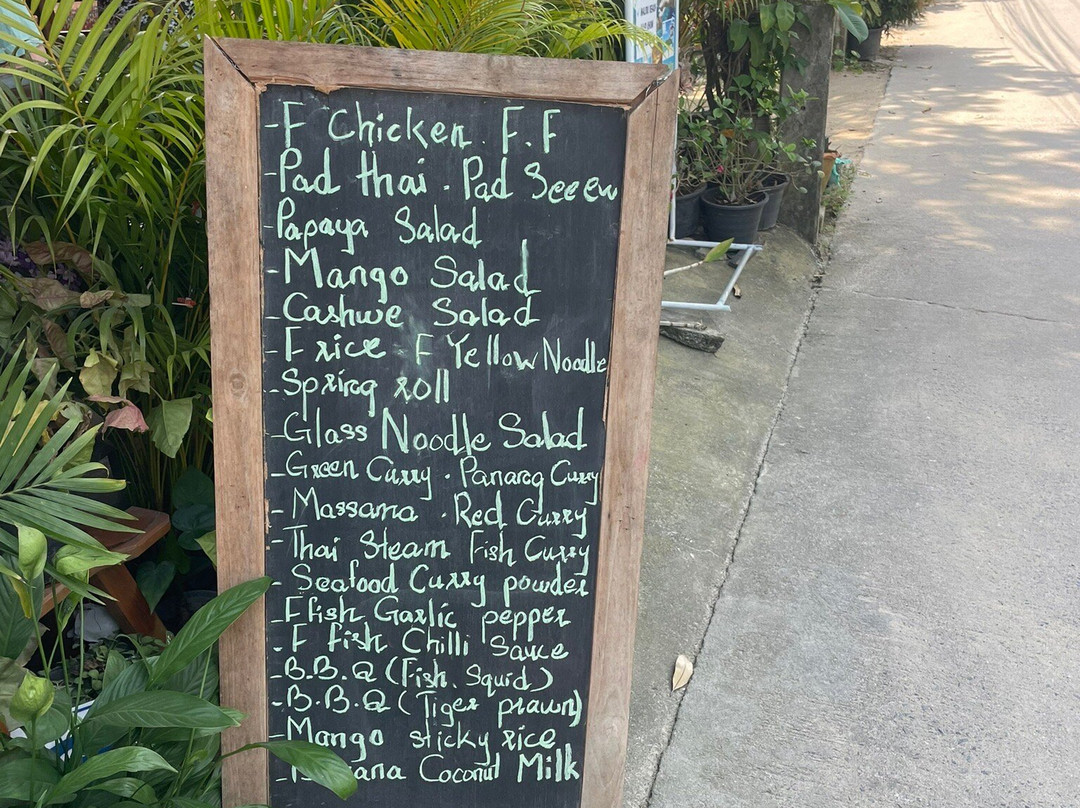 - F Chicken. F.F
- Pad thai . Pad Seeew
- Papaya Salad
- Mango Salad
- Cashwe Salad
- F rice - F Yellow Noodle
- Spring roll
- Glass Noodle Salad
- Green Curry . Panang Curry
- Massama . Red Curry
- Thai Steam Fish Curry
- Seafood Curry powder
- F fish Garlic pepper
- F fish Chilli Sauce
- B.B.Q (Fish, Squid)
- B.B.Q (Tiger prawn)
- Mango sticky rice
- Coconut Milk